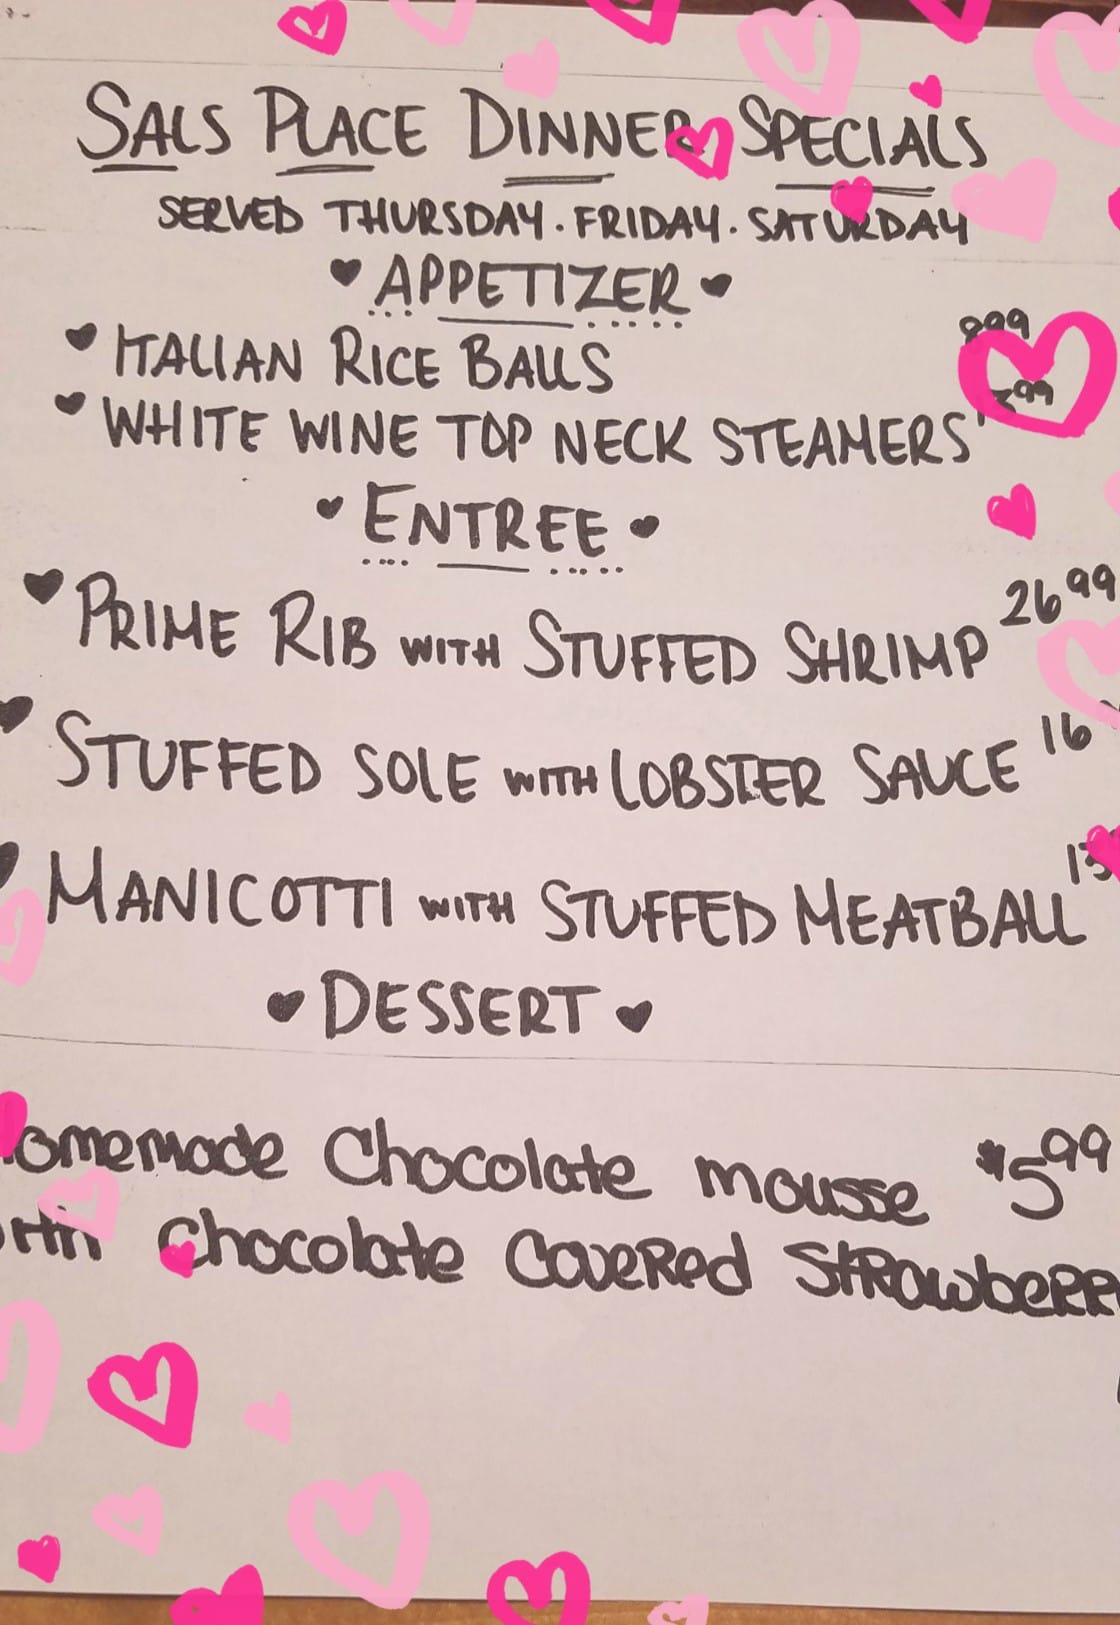 SALS PLACE DINNER SPECIALS
SERVED THURSDAY. FRIDAY. SATURDAY
APPETIZER
ITALIAN RICE BALLS 8 99
WHITE WINE TOP NECK STEAMERS 99
ENTREE
PRIME RIB WITH STUFFED SHRIMP 26 99
STUFFED SOLE WITH LOBSTER SAUCE 16
MANICOTTI WITH STUFFED MEATBALL
DESSERT
omemade Chocolate mousse $5 99
ith Chocolate Covered Strawberr